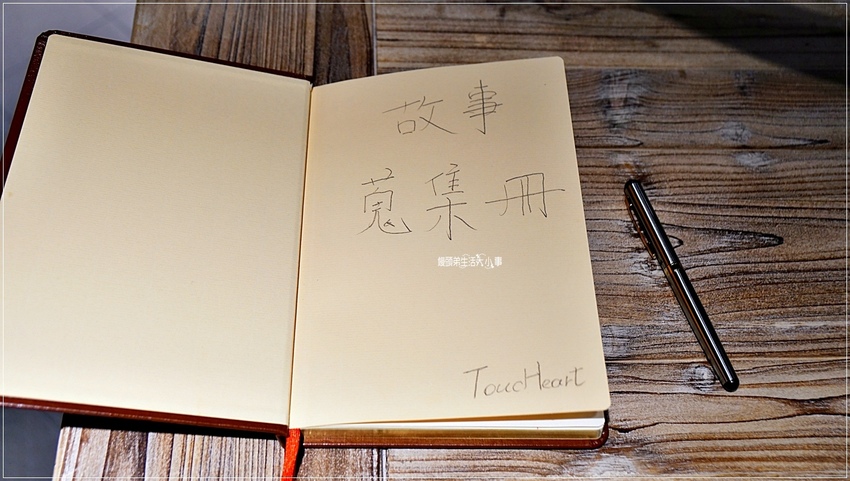 故事
蒐集冊
饅頭弟生活大小事
ToucHeart